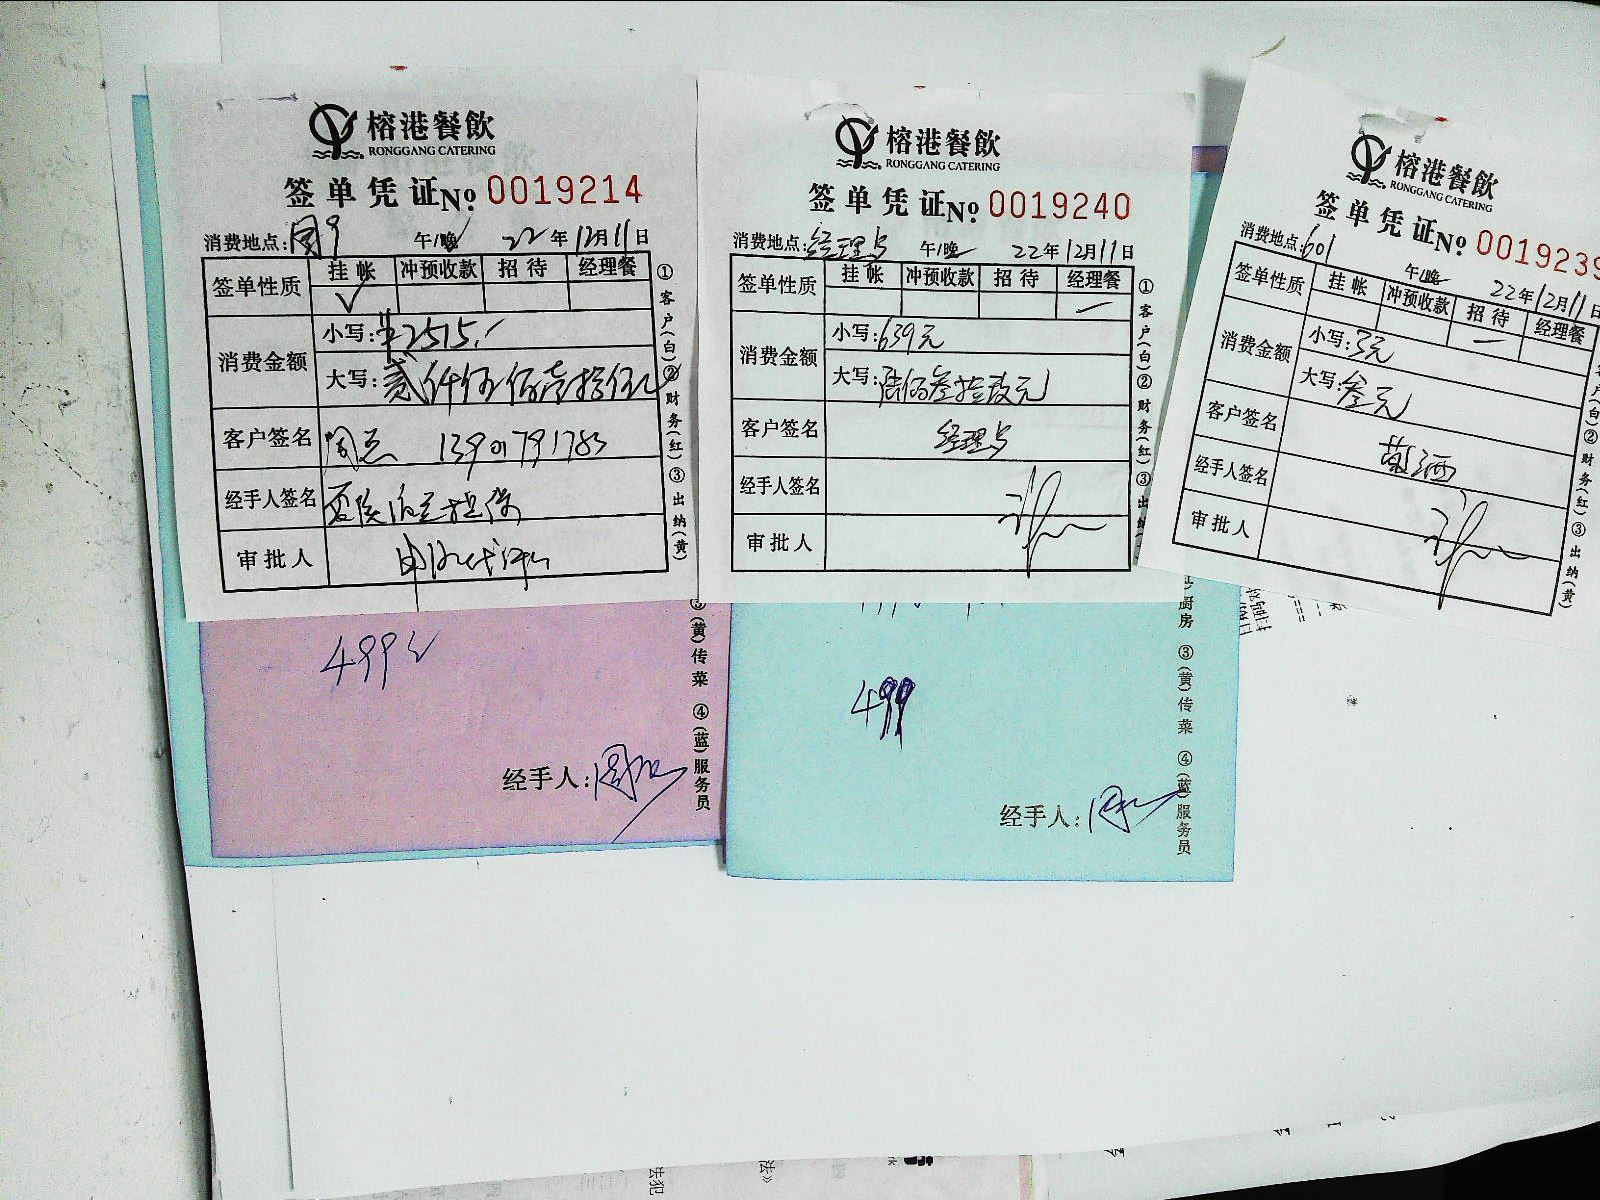 榕港餐飲
RONGGANG CATERING
签单凭证 No 0019214
消费地点: 午/晚 22年12月11日
签单性质 挂帐 冲预收款 招待 经理餐
消费金额 小写:¥2515.
大写:贰仟伍佰壹拾伍元
客户签名 周总 13901791783
经手人签名
审批人
①客户(白)②财务(红)③出纳(黄)
499元
经手人:
(黄)传菜 ④(蓝)服务员
榕港餐飲
RONGGANG CATERING
签单凭证 No 0019240
消费地点:经理 午/晚 22年12月11日
签单性质 挂帐 冲预收款 招待 经理餐
消费金额 小写:639元
大写:陆佰叁拾玖元
客户签名 经理
经手人签名
审批人
①客户(白)②财务(红)③出纳
499
经手人:
厨房 ③(黄)传菜 ④(蓝)服务员
榕港餐飲
RONGGANG CATERING
签单凭证 No 0019239
消费地点:601 午/晚 22年12月11日
签单性质 挂帐 冲预收款 招待 经理餐
消费金额 小写:3元
大写:叁元
客户签名 敬酒
经手人签名
审批人
客户(白)②财务(红)③出纳(黄)